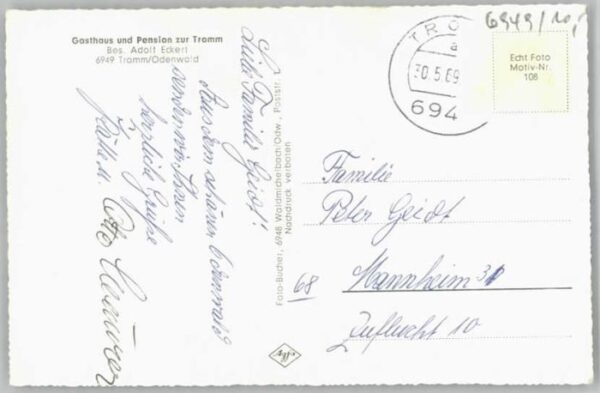 Gasthaus und Pension zur Tromm
Bes. Adolf Eckert
6949 Tromm/Odenwald
Liebe Familie Geidt!
Aus dem schönen Odenwald
senden wir Ihnen
herzliche Grüße
Käthe u. Otto
Foto-Bucher, 6948 Waldmichelbach/Odw., Poststr.
Nachdruck verboten
TRO
a
30.5.69
694
6949/10,
Echt Foto
Motiv-Nr.
108
Familie
Peter Geidt
68 Mannheim 31
Zuflucht 10
Agfa